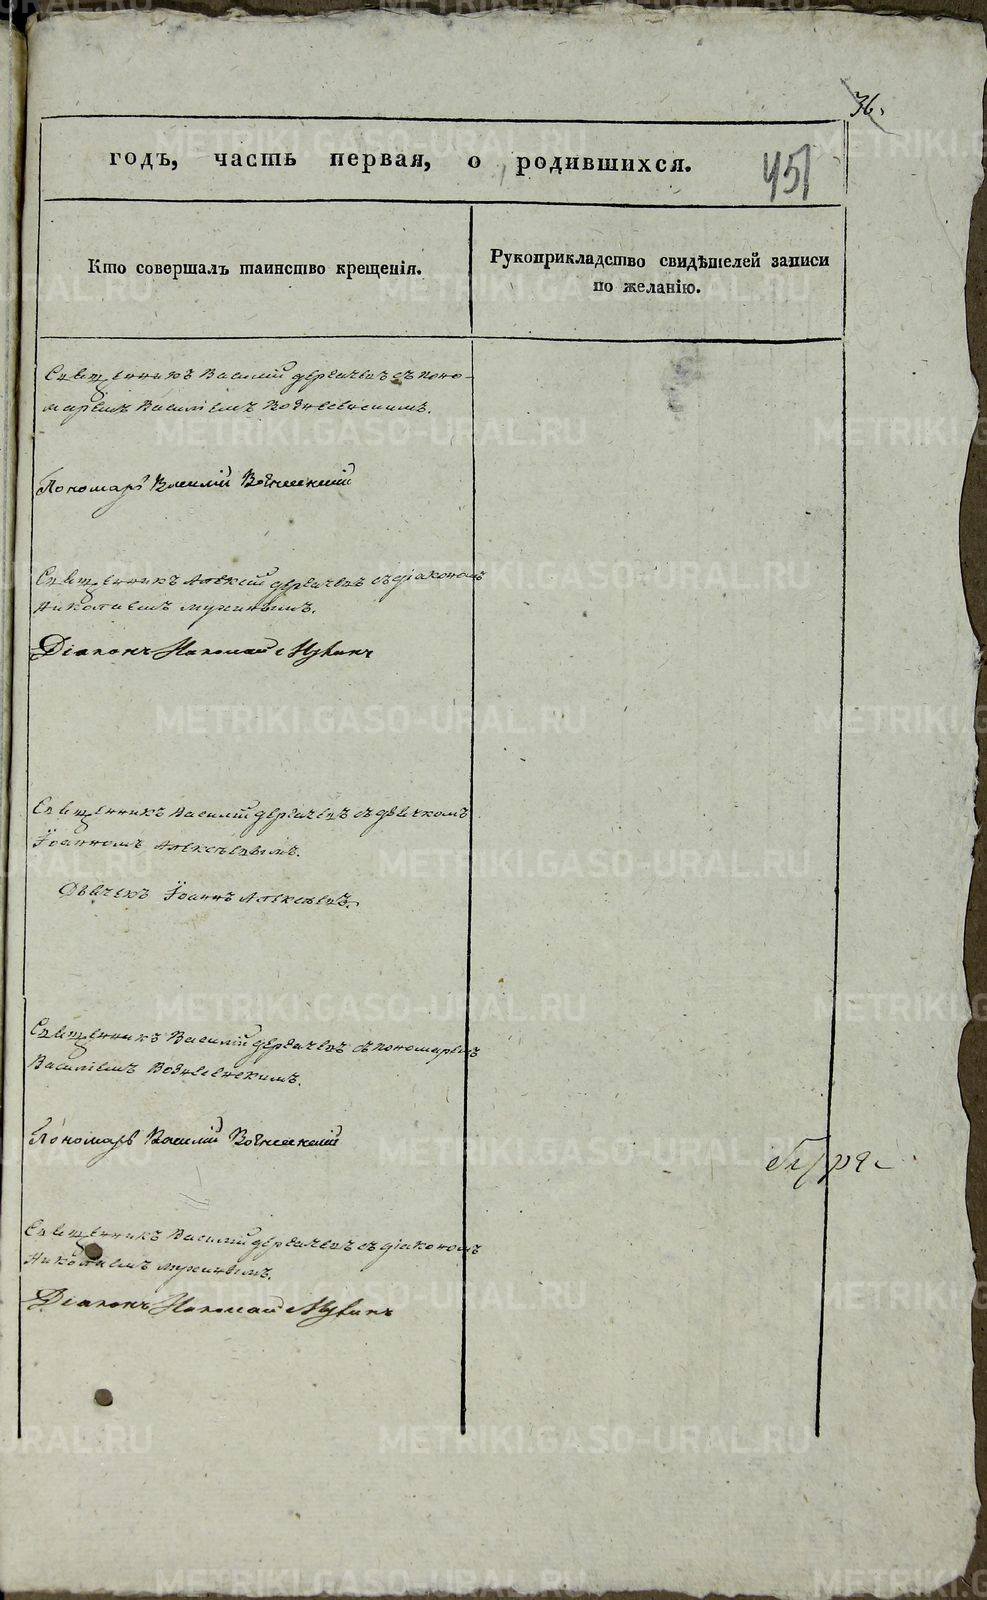 36.
годъ, часть первая, о родившихся.
451
Кто совершалъ таинство крещенія.
Рукоприкладство свидѣтелей записи
по желанію.
Священникъ Василій Дергачевъ съ поно-
маремъ Василіемъ Вознесенскимъ.
Пономарь Василій Вознесенскій
Священникъ Алексій Дергачевъ съ діакономъ
Николаемъ Мухинымъ.
Діаконъ Николай Мухинъ
Священникъ Василій Дергачевъ съ дьячкомъ
Іоанномъ Алексѣевымъ.
Дьячекъ Іоаннъ Алексѣевъ.
Священникъ Василій Дергачевъ съ пономаремъ
Василіемъ Вознесенскимъ.
Пономарь Василій Вознесенскій
Священникъ Василій Дергачевъ съ діакономъ
Николаемъ Мухинымъ.
Діаконъ Николай Мухинъ
METRIKI.GASO-URAL.RU